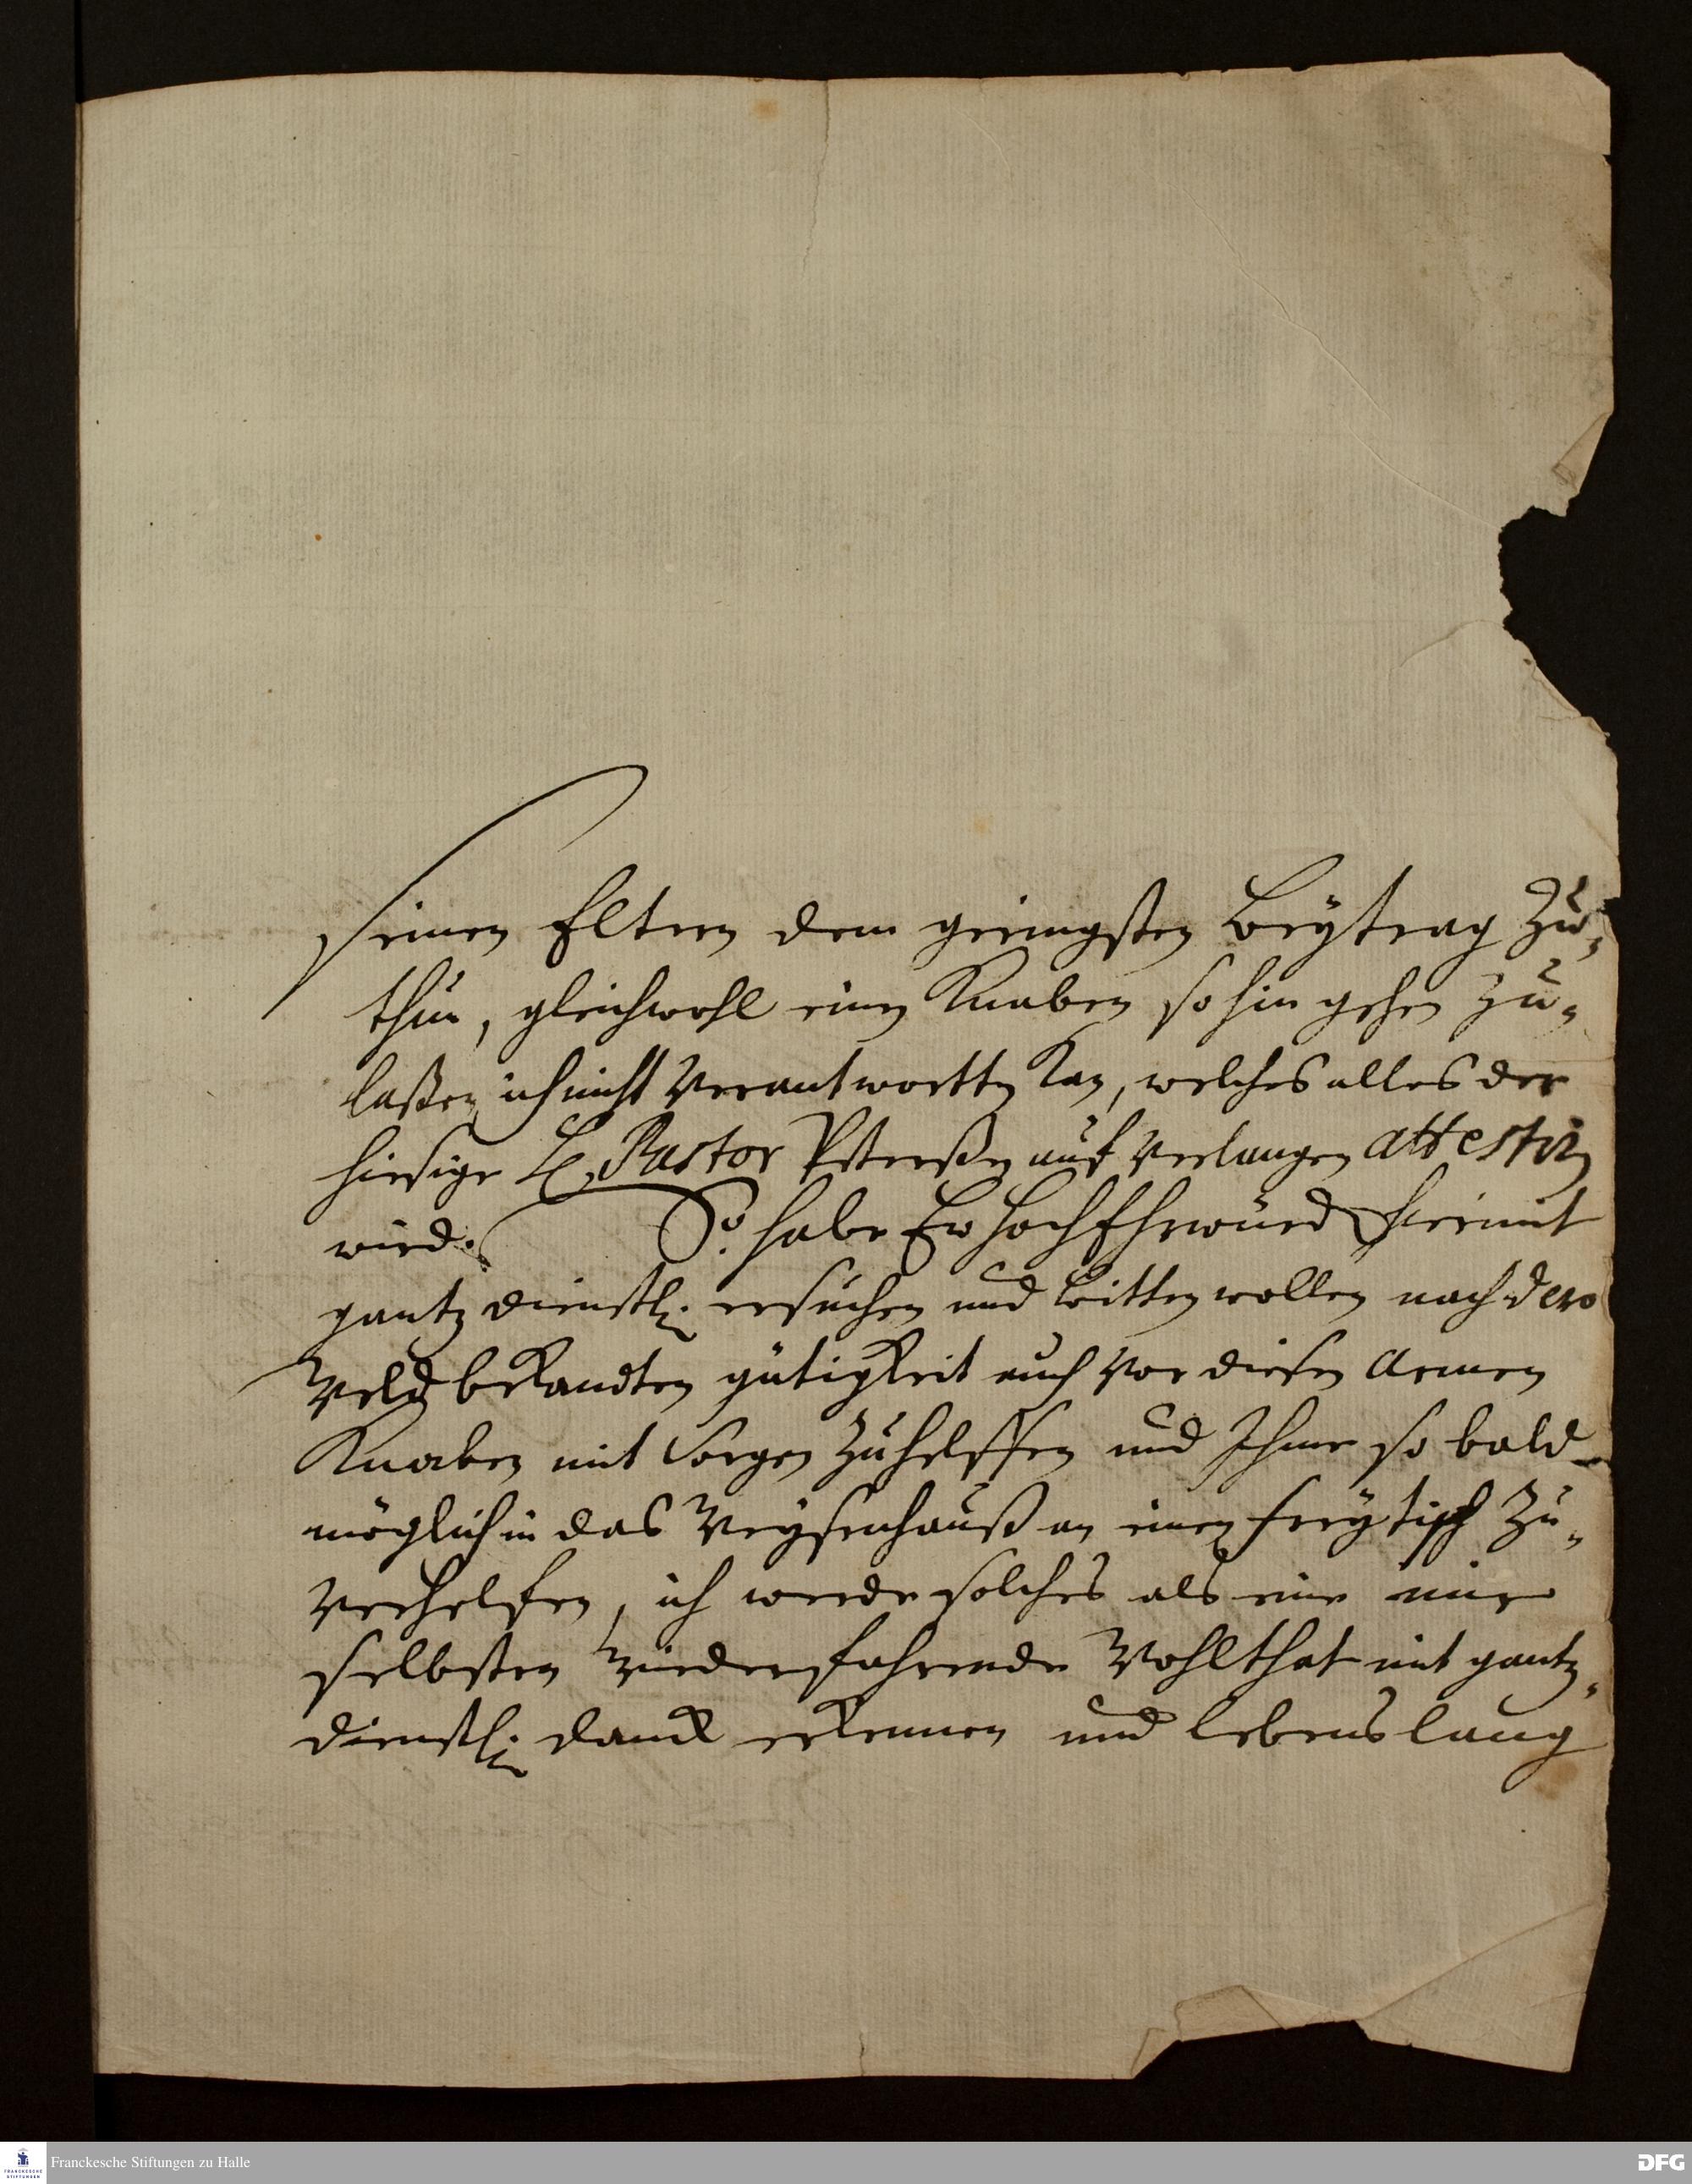 seinen Eltern dem geringsten Beytrag zu-
thun, gleichwohl einen Knaben so hin gehen zu-
laßen ich nicht verantwortten kan, welches alles der
hiesige H. Pastor auf verlangen attestirn
wird. So habe Ew HochEhrwürd hiermit
gantz dienstl. ersuchen und bitten wollen nach dero
Weldbekandten gütigkeit auch vor diesen armen
Knaben mit sorgen zuhelffen und Ihme so bald
möglich in das Weysenhauß an einen freytisch zu-
verhelfen, ich werde solches als eine mir
selbsten wiederfahrende Wohlthat mit gantz
dienstl. danck erkennen und lebenslang
Franckesche Stiftungen zu Halle
FRANCKESCHE STIFTUNGEN
DFG